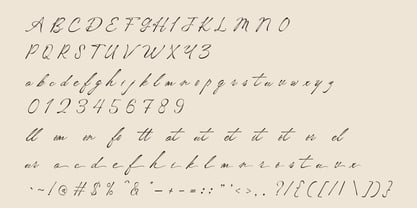 A B C D E F G H I J K L M N O
P Q R S T U V W X Y Z
a b c d e f g h i j k l m n o p q r s t u v w x y z
0 1 2 3 4 5 6 7 8 9
ll em or fo tt at ut et it ot er el
a c d e f h i k l m n r s t u v x